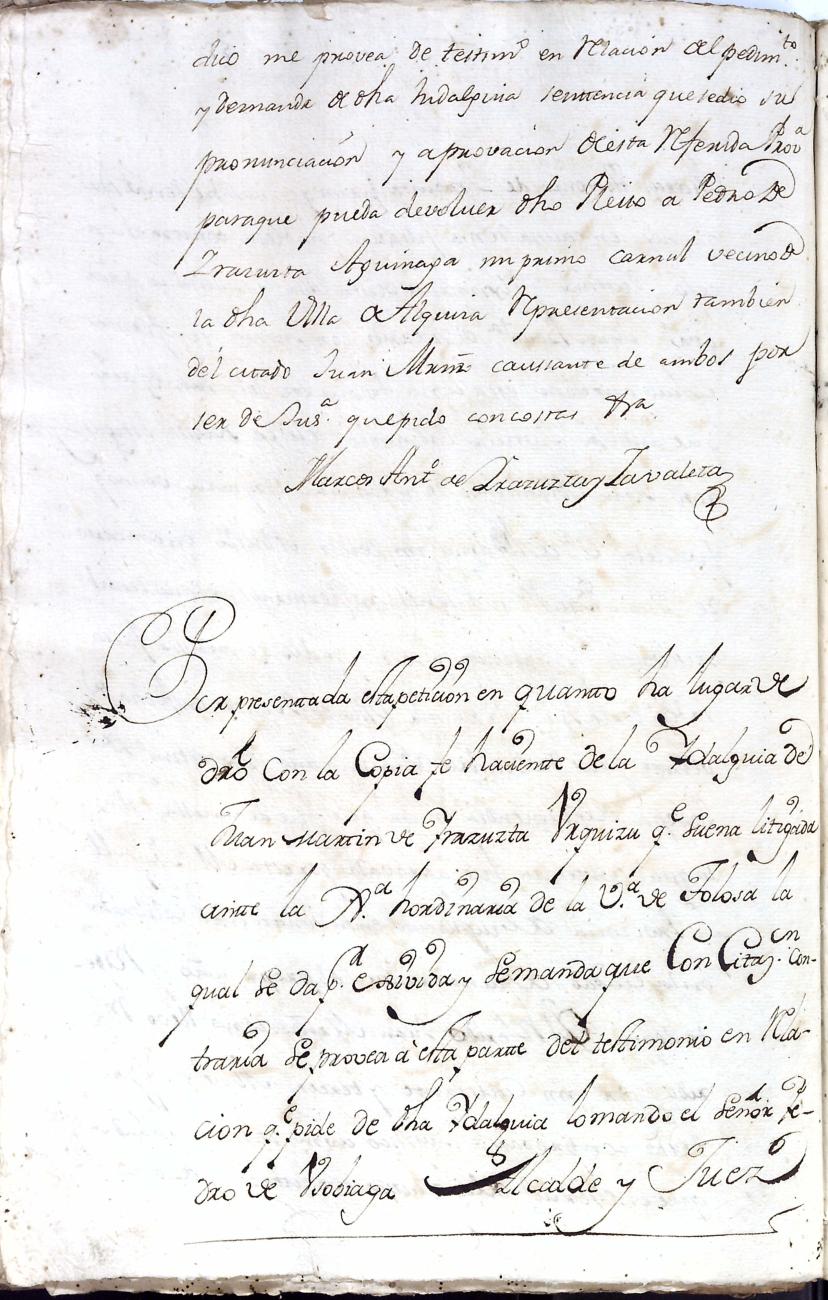 duo me provea de testimº en Relacion del pedimto
y demanda de dha hidalguia sentencia que se dio su
pronunciacion y aprovacion de esta Referida Prova
paraque pueda devolver dho Pleito a Pedro de
Irazuzta Aguinaga mi primo carnal vecino de
la dha Villa de Alquiza Representacion tambien
del citado Juan Mrnz caussante de ambos por
ser de Jusa. que pido con costas &a
Marcos Antº de Irazuzta y Zavaleta
Por presentada esta peticion en quantto ha lugar de
dro con la Copia fe hacientte de la Ydalguia de
Juan Martin de Yrazuzta Urquizu qe suena litigada
antte la Ja hordinaria de la Va de Tolosa la
qual se da pr. essivida y se manda que Con Citazn. Con-
traria se provea â esta partte del testimonio en Rela-
cion qe pide de dha Ydalguia lo mando el señor Pe-
dro de Usobiaga Alcalde y Juez